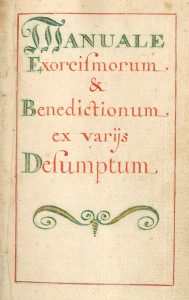 MANUALE
Exorciſmorum
&
Benedictionum
ex varijs
Deſumptum.